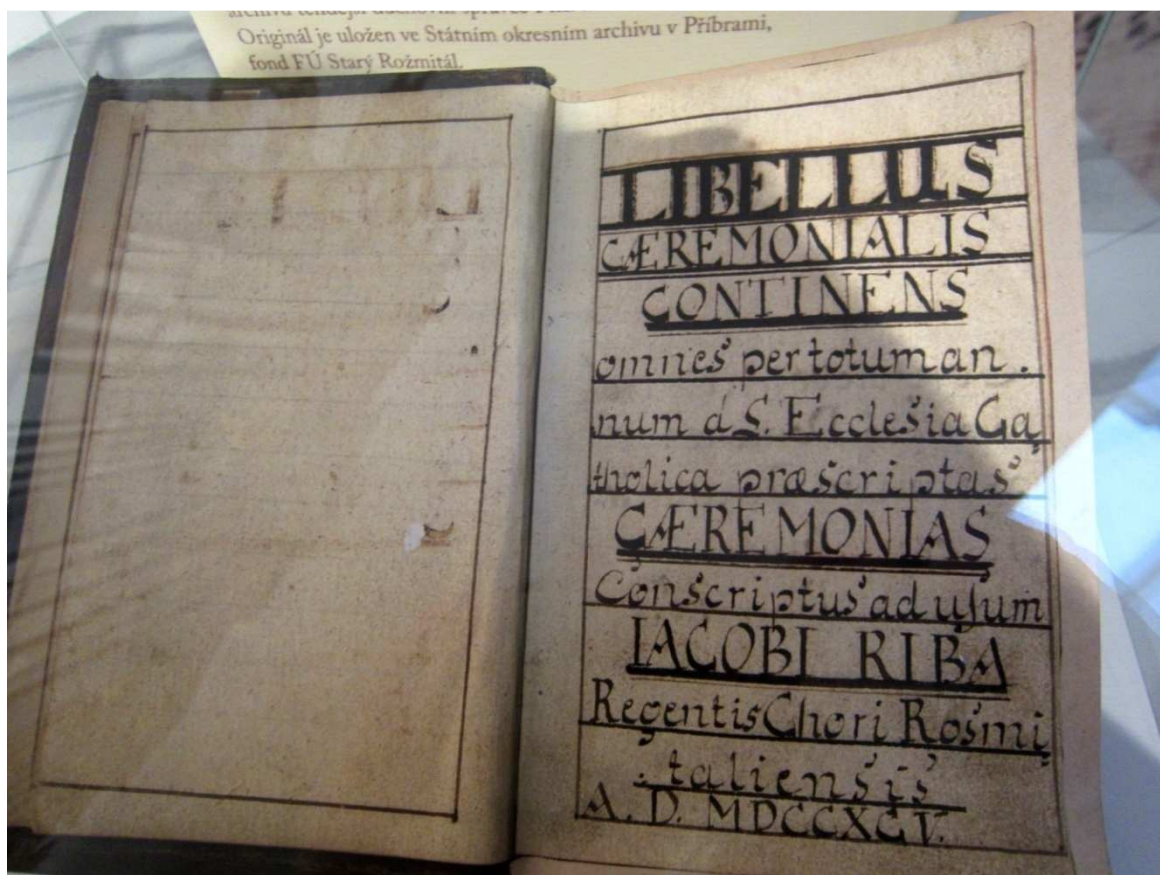 Originál je uložen ve Státním okresním archivu v Příbrami,
fond FÚ Starý Rožmitál.
LIBELLUS
CÆREMONIALIS
CONTINENS
omnes per totum an.
num a S. Ecclesia Ca
tholica præscriptas
CÆREMONIAS
Conscriptus ad uſum
IACOBI RIBA
Regentis Chori Rosmi
taliensis
A. D. MDCCXCV.